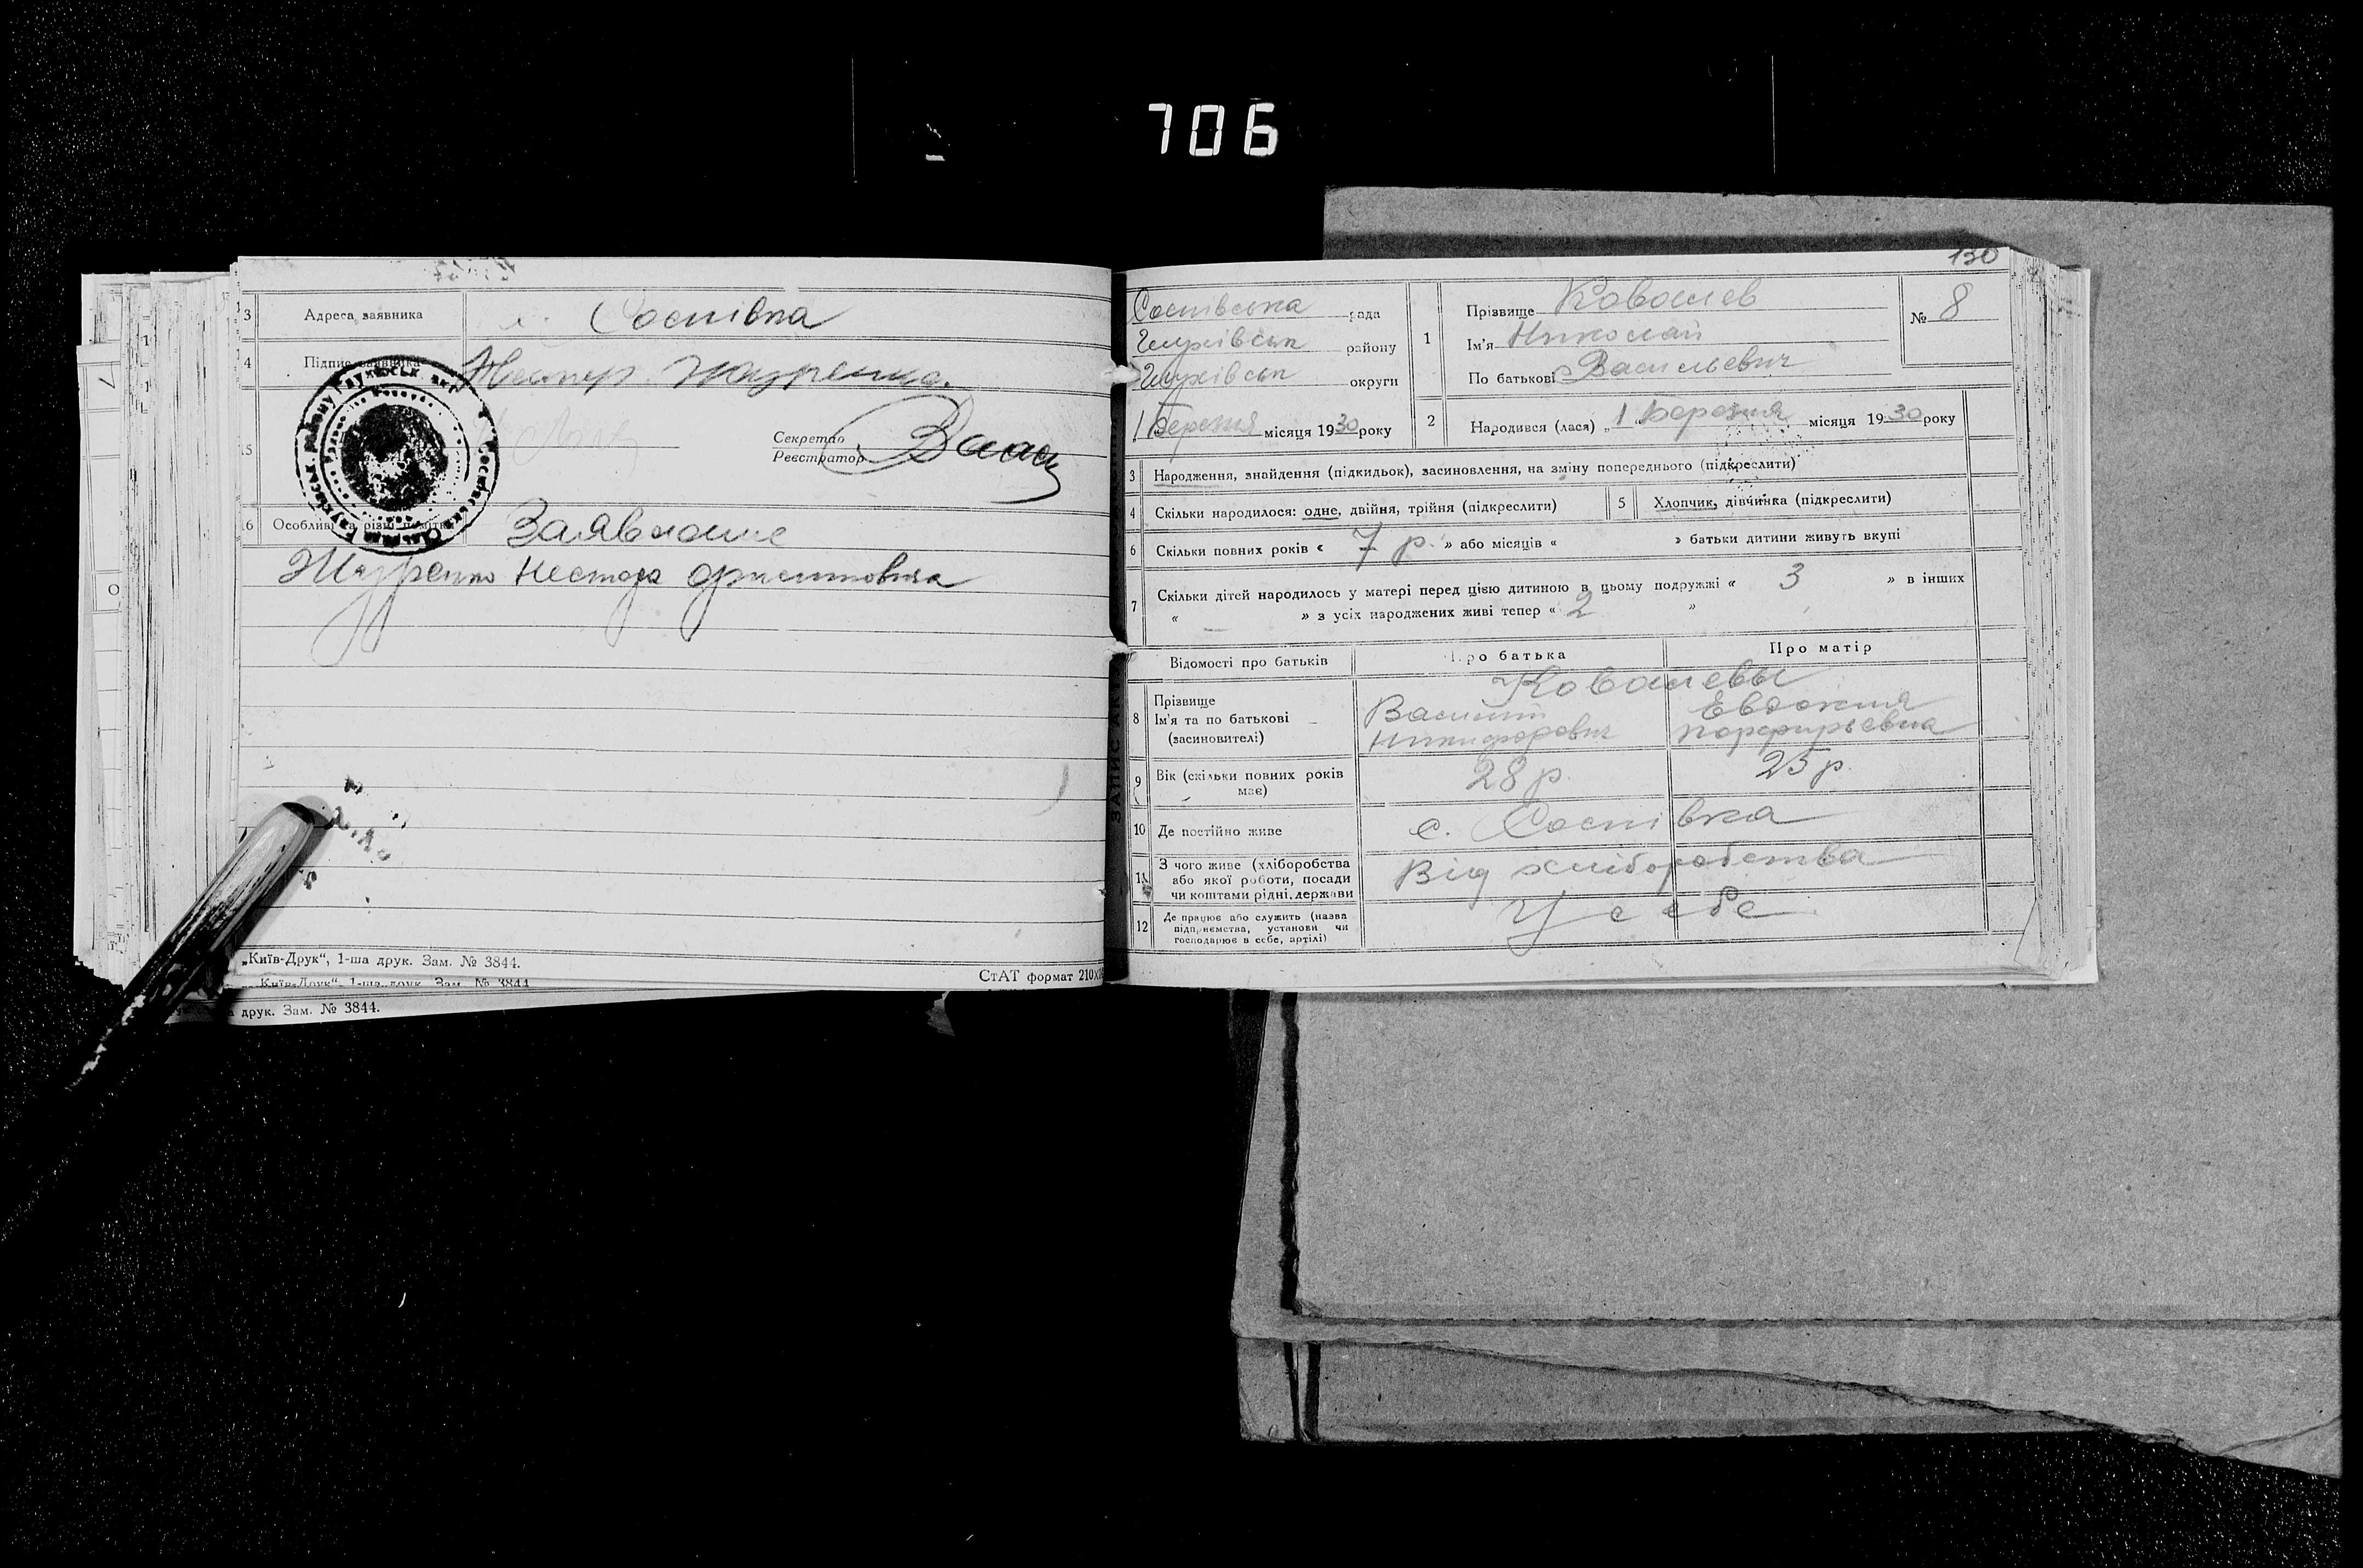 706
3 Адреса заявника с. Соснівка
4 Підпис заявника Нестер Жауренко
Секретар
Реєстратор
16 Особливі та різні помітки Заявление
Нестора
„Київ-Друк“, 1-ша друк. Зам. № 3844.
СтАТ формат 210х
„Київ-Друк“ 1-ша друк. Зам. № 3844
друк. Зам. № 3844.
130
Соснівська рада
Глухівськ району
Глухівськ округи
1 Березня місяця 1930 року
1 Прізвище Ковалев
Ім'я Николай
По батькові Васильевич
№ 8
2 Народився (лася) „1 Березня місяця 1930 року
3 Народження, знайдення (підкидьок), засиновлення, на зміну попереднього (підкреслити)
4 Скільки народилося: одне, двійня, трійня (підкреслити) 5 Хлопчик, дівчинка (підкреслити)
6 Скільки повних років « 7 р. » або місяців « » батьки дитини живуть вкупі
7 Скільки дітей народилось у матері перед цією дитиною в цьому подружжі « 3 » в інших
« — » з усіх народжених живі тепер « 2 »
Відомості про батьків Про батька Про матір
Ковалевы
8 Прізвище
Ім'я та по батькові
(засиновителі)
Василий
Никифорович
Евдокия
Порфирьевна
9 Вік (скільки повних років має) 28 р. 25 р.
10 Де постійно живе с. Соснівка
11 З чого живе (хліборобства
або якої роботи, посади
чи коштами рідні, держави
Від хліборобства
12 Де працює або служить (назва
підприємства, установи чи
господарює в себе, артілі)
У себе
ЗАПИС АК